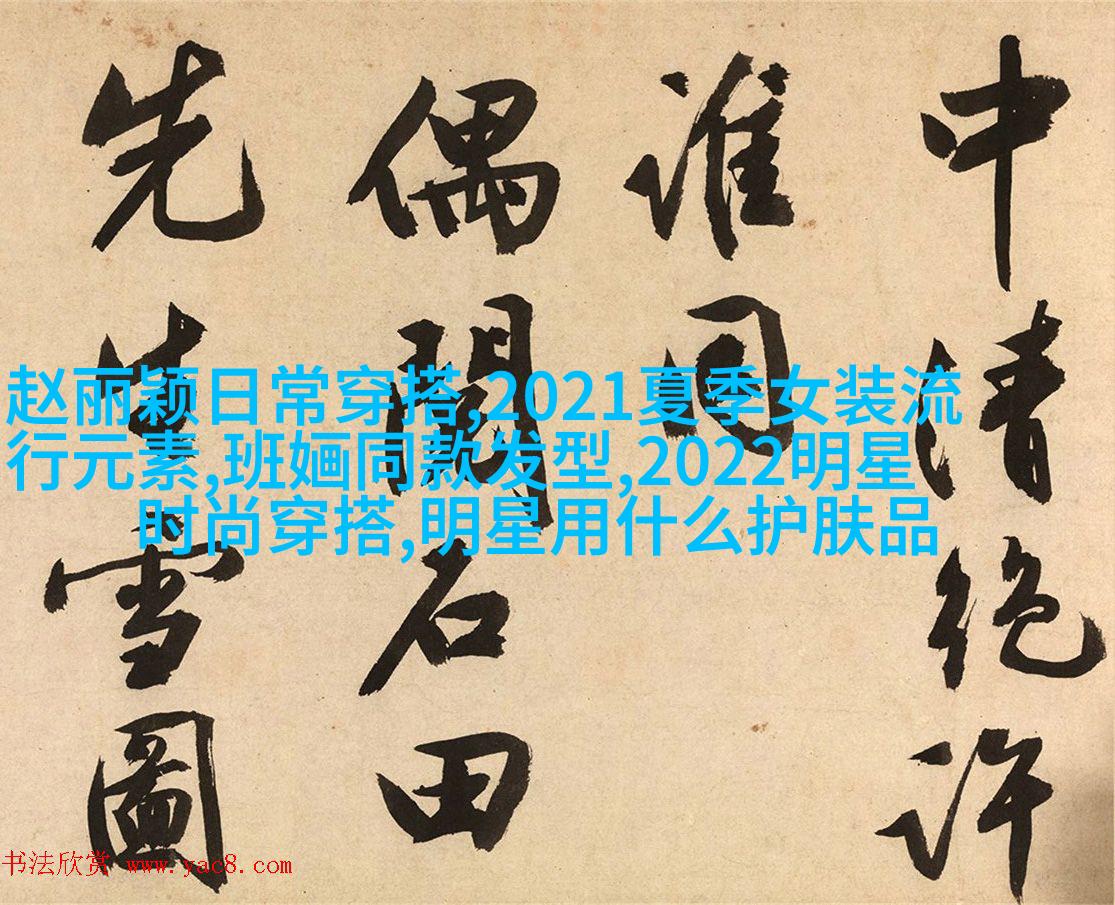 中清絶許
誰同
偶閲石田
先生雪圖
赵丽颖日常穿搭,2021夏季女装流
行元素,班婳同款发型,2022明星
时尚穿搭,明星用什么护肤品
书法欣赏 www.yac8.com